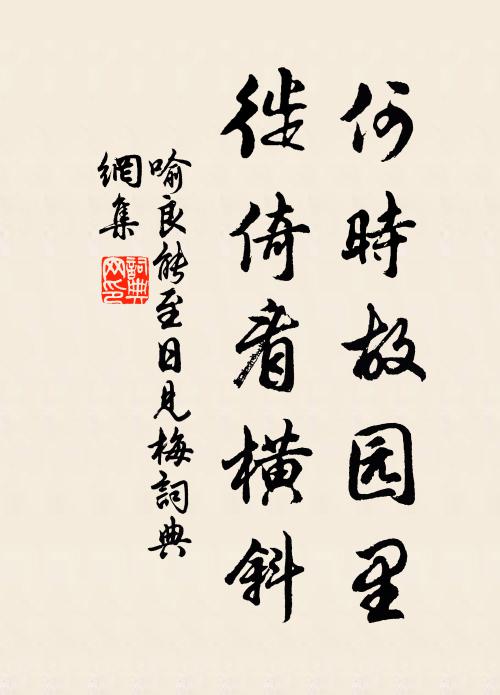 何時故园里
徙倚看橫斜
喻良能至日見梅詞典
網集
詞典
网印